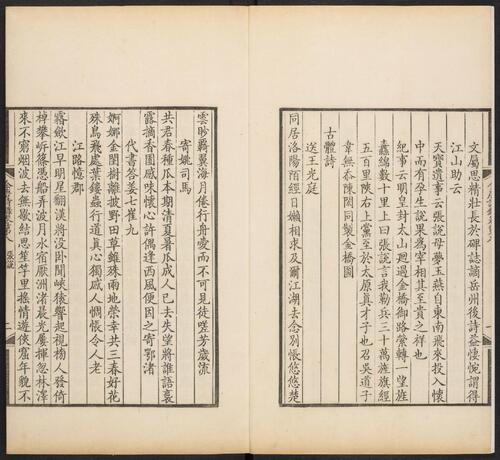 文屬思精壯長於碑誌謫岳州後詩益悽惋謂得
江山助云
天寶遺事云張說母夢玉燕自東南飛來投入懷
中而有孕生說果為宰相其至貴之祥也
紀事云明皇封太山迴過金橋御路縈轉一望旌
纛綿數十里上曰張說言我勒兵三十萬旌旗經
五百里陝右上黨至於太原真才子也召吳道子
韋無忝陳閎同製金橋圖
古體詩
送王光庭
同居洛陽陌經日嬾相求及爾江湖去念別悵悠悠楚
雲眇羈翼海月倦行舟愛而不可見徒嗟芳歲流
寄姚司馬
共君春種瓜本期清夏暑瓜成人已去失望將誰語裛
露摘香園感味懷心許偶逢西風便因之寄鄂渚
代書答姜七崔九
婀娜金閨樹離披野田草雖殊兩地榮幸共三春好花
殊鳥飛處葉鏤蟲行道真心獨感人惆悵令人老
江路憶郡
霧斂江早明星翻漢將沒臥聞峽猿響起視榜人發倚
棹攀岍篠憑船弄波月水宿厭洲渚晨光屢揮忽林澤
來不窮烟波去無歇結思笙竽里搖情遊俠窟年貌不
張說